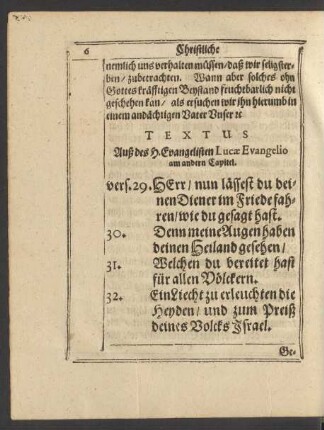 6 Christliche
nemlich uns verhalten müssen/daß wir seligster-
ben/zubetrachten. Wann aber solches ohn
Gottes kräfftigen Beystand fruchtbarlich nicht
geschehen kan/ als ersuchen wir ihn hierumb in
einem andächtigen Vater Unser ꝛc
TEXTUS
Auß des H. Evangelisten Lucæ Evangelio
am andern Capitel.
vers. 29. HErr/ nun lässest du dei-
nen Diener im Friede fah-
ren/wie du gesagt hast.
30. Denn meine Augen haben
deinen Heiland gesehen/
31. Welchen du bereitet hast
für allen Völckern.
32. Ein Liecht zu erleuchten die
Heyden/ und zum Preiß
deines Volcks Israel.
Ge-